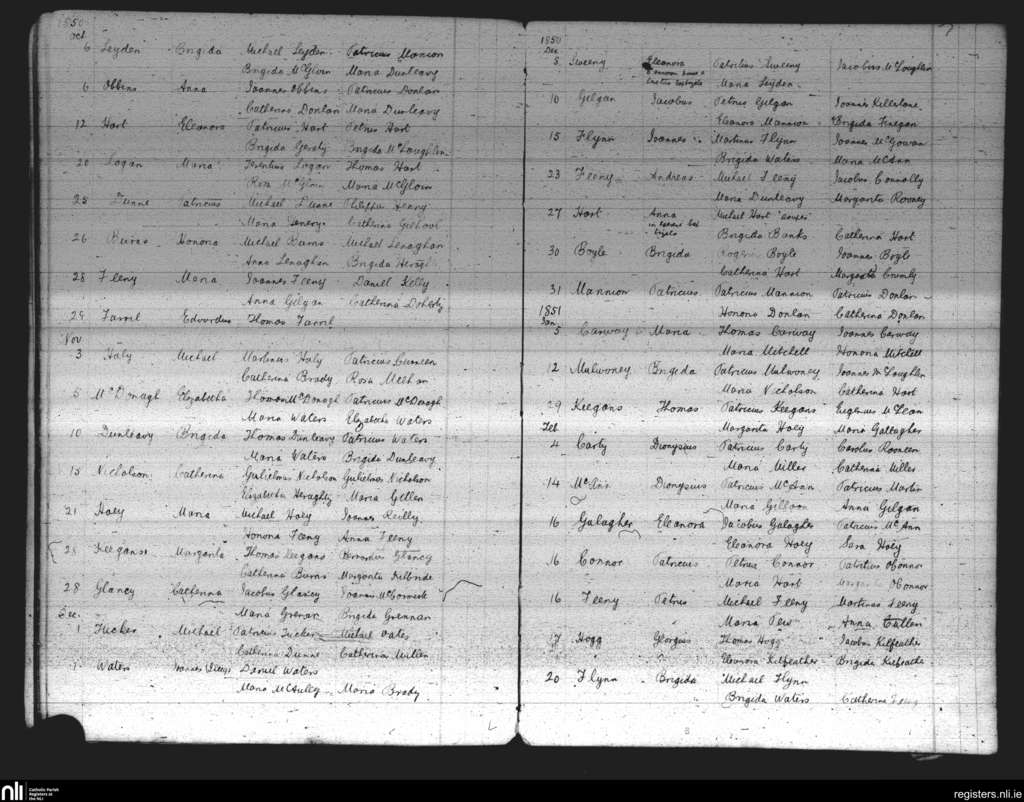 1850
Oct
6 Leyden Brigida Michael Leyden Patricius Mannion
Brigida McGloin Maria Dunleavy
6 Obbins Anna Joannes Obbins Patricius Donlan
Catherina Donlan Maria Dunleavy
12 Hart Eleanora Patricius Hart Petrus Hart
Brigida Geraty Brigida McLoughlin
20 Logan Maria Terentius Logan Thomas Hart
Rosa McGloin Maria McGloin
25 Dunne Patricius Michael Dunne Philippus Henry
Maria Henry Catherina
26 Burns Honoria Michael Burns Michael Lenaghan
Anna Lenaghan Brigida
28 Feeny Maria Joannes Feeny Daniel Kelly
Anna Gilgan Catherina Doherty
29 Farril Edvardus Thomas Farril
Nov
3 Haly Michael Martinus Haly Patricius
Catherina Brady Rosa Meehan
5 McDonagh Elizabetha Thomas McDonagh Patricius McDonagh
Maria Waters Elizabeth Waters
10 Dunleavy Brigida Thomas Dunleavy Patricius Waters
Maria Waters Brigida Dunleavy
15 Nicholson Catherina Gulielmus Nicholson Gulielmus Nicholson
Elizabetha Heraghty Maria Gillen
21 Hoey Maria Michael Hoey Joannes Reilly
Honora Feeny Anna Feeny
28 Keegans Margarita Thomas Keegans Glancy
Catherina Burns Margarita Kilbride
28 Glancy Catherina Jacobus Glancy Joannes McCormick
Maria Grenan Brigida Grennan
Dec.
1 Tucker Michael Patricius Tucker Michael Oates
Catherina Dunne Catherina Millen
1 Waters Joannes Daniel Waters
Maria McAuley Maria Brady
1850
Dec
8 Sweeny Eleanora Patritius Sweeny Jacobus McLoughlin
Maria Leyden
10 Gilgan Jacobus Petrus Gilgan Joannes
Eleanora Mannion Brigida Finegan
15 Flynn Joannes Martinus Flynn Joannes McGowan
Brigida Waters Maria McAnn
23 Feeny Andreas Michael Feeny Jacobus Connolly
Maria Dunleavy Margarita Rooney
27 Hart Anna Michael Hart
Brigida Banks Catherina Hart
30 Boyle Brigida Rogerius Boyle Joannes Boyle
Catherina Hart Margarita
31 Mannion Patricius Patricius Mannion Patricius Donlan
Honora Donlan Catherina Donlan
1851
Jan
5 Carway Maria Thomas Carway Joannes Carway
Maria Mitchell Honora Mitchell
12 Mulwoney Brigida Patricius Mulwoney Joannes McLoughlin
Maria Nicholson Catherina Hart
29 Keegans Thomas Patricius Keegans Eugenius McLean
Margarita Hoey Maria Gallagher
Feb
4 Carty Dionysius Patricius Carty Carolus Rooneen
Maria Miller Catherina Miller
14 McAnn Dionysius Patricius McAnn Patricius Martin
Maria Gilloon Anna Gilgan
16 Galagher Eleanora Jacobus Galagher Patricius McAnn
Eleanora Hoey Sara Hoey
16 Connor Patricius Petrus Connor Patritius OConnor
Maria Hart OConnor
16 Feeny Petrus Michael Feeny Martinus Feeny
Maria Pew Anna Cullen
17 Hogg Georgius Thomas Hogg Jacobus Kilfeather
Eleanora Kilfeather Brigida Kilfeather
20 Flynn Brigida Michael Flynn
Brigida Waters Catherina
nli Catholic Parish
Registers at
the NLI
registers.nli.ie